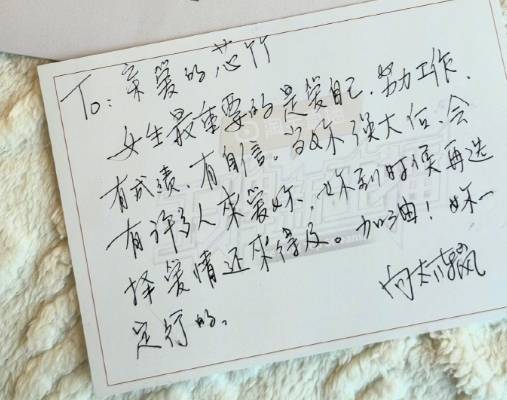 To: 亲爱的芯竹
女生最重要的是爱自己、努力工作、
有成绩、有自信。当妳强大后、会
有许多人来爱妳、妳到时候再选
择爱情还来得及。加油！妳一
定行的。